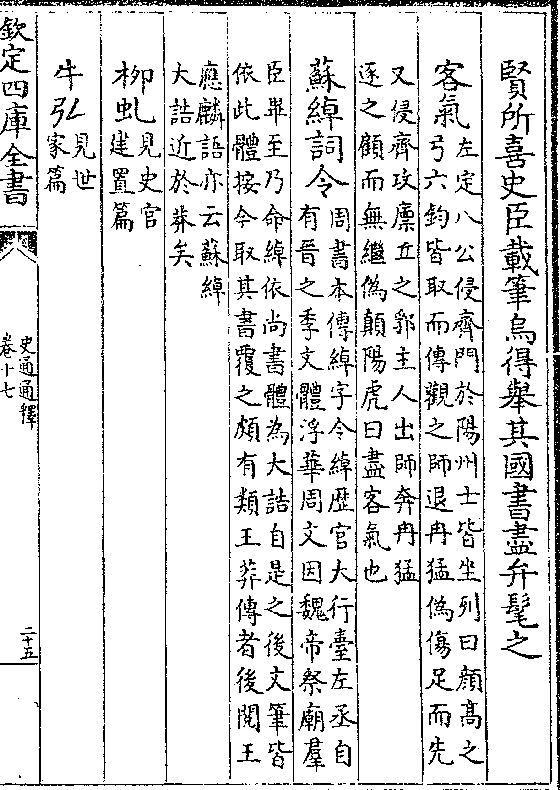 賢所喜史臣載筆烏得舉其國書盡弁髦之
客氣
左定八公侵齊門於陽州士皆坐列曰顔髙之
弓六鈞皆取而傳觀之師退冉猛偽傷足而先
又侵齊攻廩丘之郛主人出師奔冉猛
逐之顧而無繼偽顛陽虎曰盡客氣也
蘇綽詞令
周書本傳綽字令綽歴官大行臺左丞自
有晉之季文體浮華周文因魏帝祭廟羣
臣畢至乃命綽依尚書體為大誥自是之後文筆皆
依此體按今取其書覆之頗有類王莽傳者後閱王
應麟語亦云蘇綽
大誥近於莽矣
栁虬
見史官
建置篇
牛弘
見世
家篇
欽定四庫全書
史通通釋
卷十七
二十五